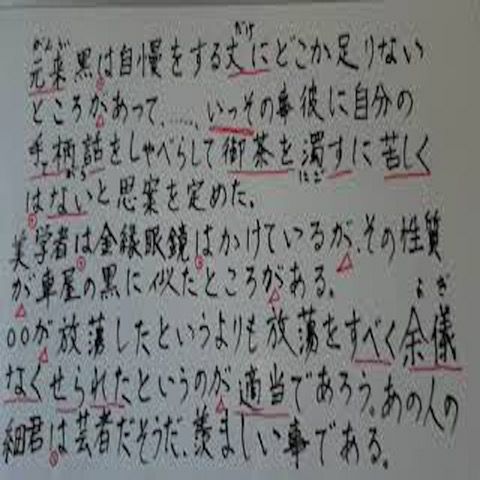 元来黒は自慢をする丈にどこか足りない
ところがあって、……、いっその事彼に自分の
手柄話をしゃべらして御茶を濁すに苦しく
はないと思案を定めた。
美学者は金縁眼鏡はかけているが、その性質
が車屋の黒に似たところがある。
○○が放蕩したというよりも放蕩をすべく余儀
なくせられたというのが適当であろう。あの人の
細君は芸者だそうだ、羨ましい事である。